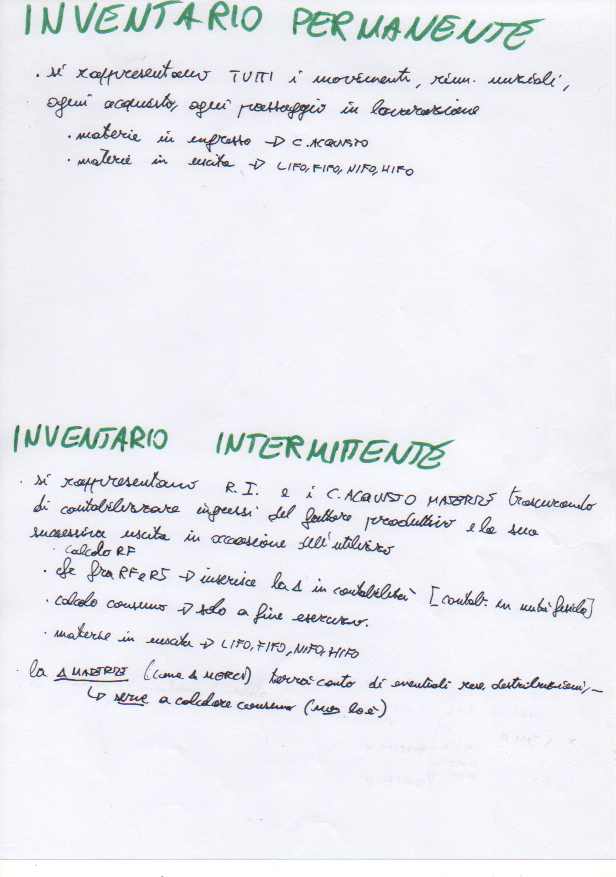 INVENTARIO PERMANENTE
· si rappresentano TUTTI i movimenti, rim. iniziali,
ogni acquisto, ogni passaggio in lavorazione
· materie in ingresso → C. ACQUISTO
· materie in uscita → LIFO, FIFO, NIFO, HIFO
INVENTARIO INTERMITTENTE
· si rappresentano R.I. e i C. ACQUISTO MATERIE trascurando
di contabilizzare ingressi del fattore produttivo e la sua
successiva uscita in occasione dell'utilizzo
· calcolo RF
· fra RF e → inserisce la Δ in contabilità [contab.
· calcolo consumo → solo a fine esercizio.
· materie in uscita → LIFO, FIFO, NIFO, HIFO
· la Δ MATERIE (come Δ MERCI) terrà conto di eventuali
↳ serve a calcolare consumo (non lo è)